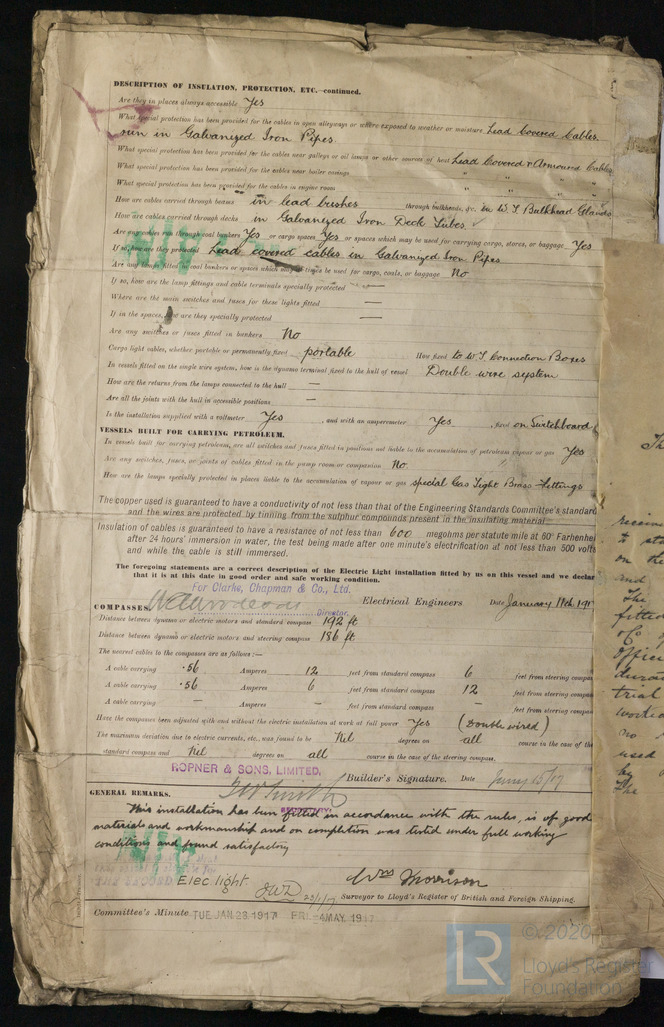 DESCRIPTION OF INSULATION, PROTECTION, ETC.—continued.
Are they in places always accessible Yes
What special protection has been provided for the cables in open alleyways or where exposed to weather or moisture Lead Covered Cables
run in Galvanized Iron Pipes
What special protection has been provided for the cables near galleys or oil lamps or other sources of heat Lead Covered & Armoured Cables
What special protection has been provided for the cables near boiler casings " " "
What special protection has been provided for the cables in engine room " " "
How are cables carried through beams in lead bushes through bulkheads, &c. in W.T. Bulkhead Glands
How are cables carried through decks in Galvanized Iron Deck Tubes
Are any cables run through coal bunkers Yes or cargo spaces Yes or spaces which may be used for carrying cargo, stores, or baggage Yes
If so, how are they protected Lead covered cables in Galvanized Iron Pipes
Are any lamps fitted in coal bunkers or spaces which may at times be used for cargo, coals, or baggage No
If so, how are the lamp fittings and cable terminals specially protected —
Where are the main switches and fuses for these lights fitted —
If in the spaces, how are they specially protected —
Are any switches or fuses fitted in bunkers No
Cargo light cables, whether portable or permanently fixed portable How fixed to W.T. Connection Boxes
In vessels fitted on the single wire system, how is the dynamo terminal fixed to the hull of vessel Double wire system
How are the returns from the lamps connected to the hull —
Are all the joints with the hull in accessible positions —
Is the installation supplied with a voltmeter Yes , and with an amperemeter Yes , fixed on Switchboard
VESSELS BUILT FOR CARRYING PETROLEUM.
In vessels built for carrying petroleum, are all switches and fuses fitted in positions not liable to the accumulation of petroleum vapour or gas Yes
Are any switches, fuses, or joints of cables fitted in the pump room or companion No
How are the lamps specially protected in places liable to the accumulation of vapour or gas special Gas Tight Brass Fittings
The copper used is guaranteed to have a conductivity of not less than that of the Engineering Standards Committee's standard
and the wires are protected by tinning from the sulphur compounds present in the insulating material.
Insulation of cables is guaranteed to have a resistance of not less than 600 megohms per statute mile at 60° Farhenhe
after 24 hours' immersion in water, the test being made after one minute's electrification at not less than 500 volts
and while the cable is still immersed.
The foregoing statements are a correct description of the Electric Light installation fitted by us on this vessel and we declar
that it is at this date in good order and safe working condition.
For Clarke, Chapman & Co., Ltd.
Director. Electrical Engineers Date January 11th 191
COMPASSES.
Distance between dynamo or electric motors and standard compass 192 ft
Distance between dynamo or electric motors and steering compass 186 ft
The nearest cables to the compasses are as follows:—
A cable carrying ·56 Amperes 12 feet from standard compass 6 feet from steering compas
A cable carrying ·56 Amperes 6 feet from standard compass 12 feet from steering compas
A cable carrying — Amperes — feet from standard compass — feet from steering compas
Have the compasses been adjusted with and without the electric installation at work at full power Yes (Double wired)
The maximum deviation due to electric currents, etc., was found to be Nil degrees on all course in the case of the
standard compass and Nil degrees on all course in the case of the steering compass.
ROPNER & SONS, LIMITED.
Builder's Signature. Date
SECRETARY.
GENERAL REMARKS.
This installation has been fitted in accordance with the rules, is of good
materials and workmanship and on completion was tested under full working
conditions and found satisfactory
Elec. light
23/1/17
Wm Morrison
Surveyor to Lloyd's Register of British and Foreign Shipping.
Committee's Minute TUE. JAN. 23 1917 FRI. 4 MAY. 191
Th
receive
to sta
on the
and
The
fitted
of
Officer
durat
trial
worked
no
used
by
The
LR
© 2020
Lloyd's Register
Foundation